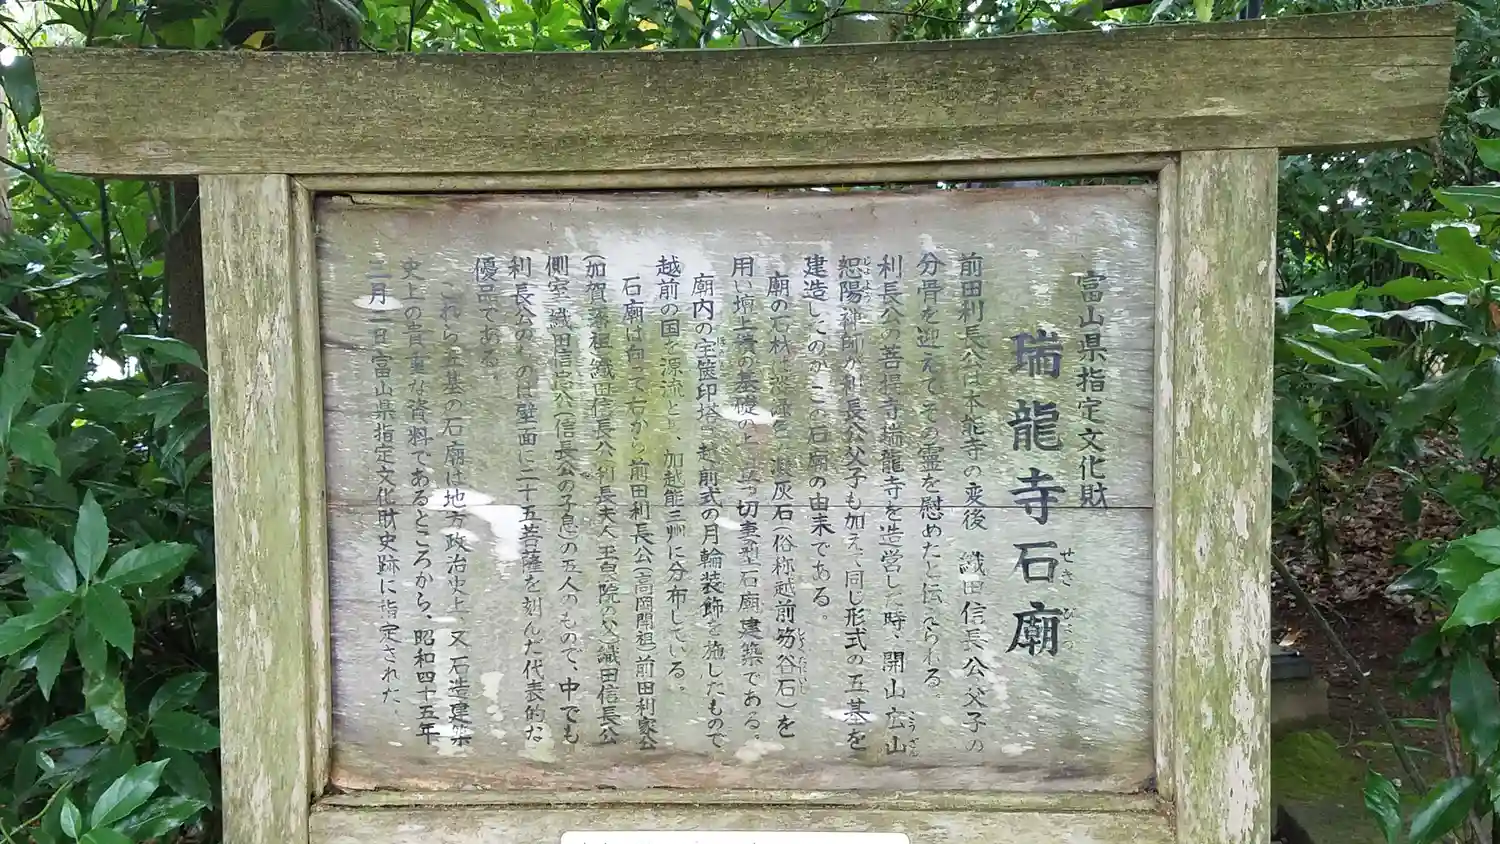 富山県指定文化財
瑞龍寺石廟
せきびょう
前田利長公は本能寺の変後 織田信長公父子の
分骨を迎えてその霊を慰めたと伝えられる。
利長公の菩提寺瑞龍寺を造営した時、開山広山
こうざん
恕陽禅師が利長公父子も加えて同じ形式の五基を
じょよう
建造したのがこの石廟の由来である。
廟の石材は 凝灰石(俗称越前笏谷石)を
しゃくだにいし
用い壇上積の基礎の上に立つ切妻型石廟建築である。
廟内の宝篋印塔は越前式の月輪装飾を施したもので
越前の国を源流とし、加越能三州に分布している。
石廟は向って右から前田利長公(高岡開祖)前田利家公
(加賀藩祖)織田信長公 利長夫人玉泉院の父 織田信長公
側室 織田信忠公(信長公の子息)の五人のもので、中でも
利長公のものは壁面に二十五菩薩を刻んだ代表的な
優品である。
これら五基の石廟は地方政治史上、又石造建築
史上の貴重な資料であるところから、昭和四十五年
二月 日富山県指定文化財史跡に指定された。